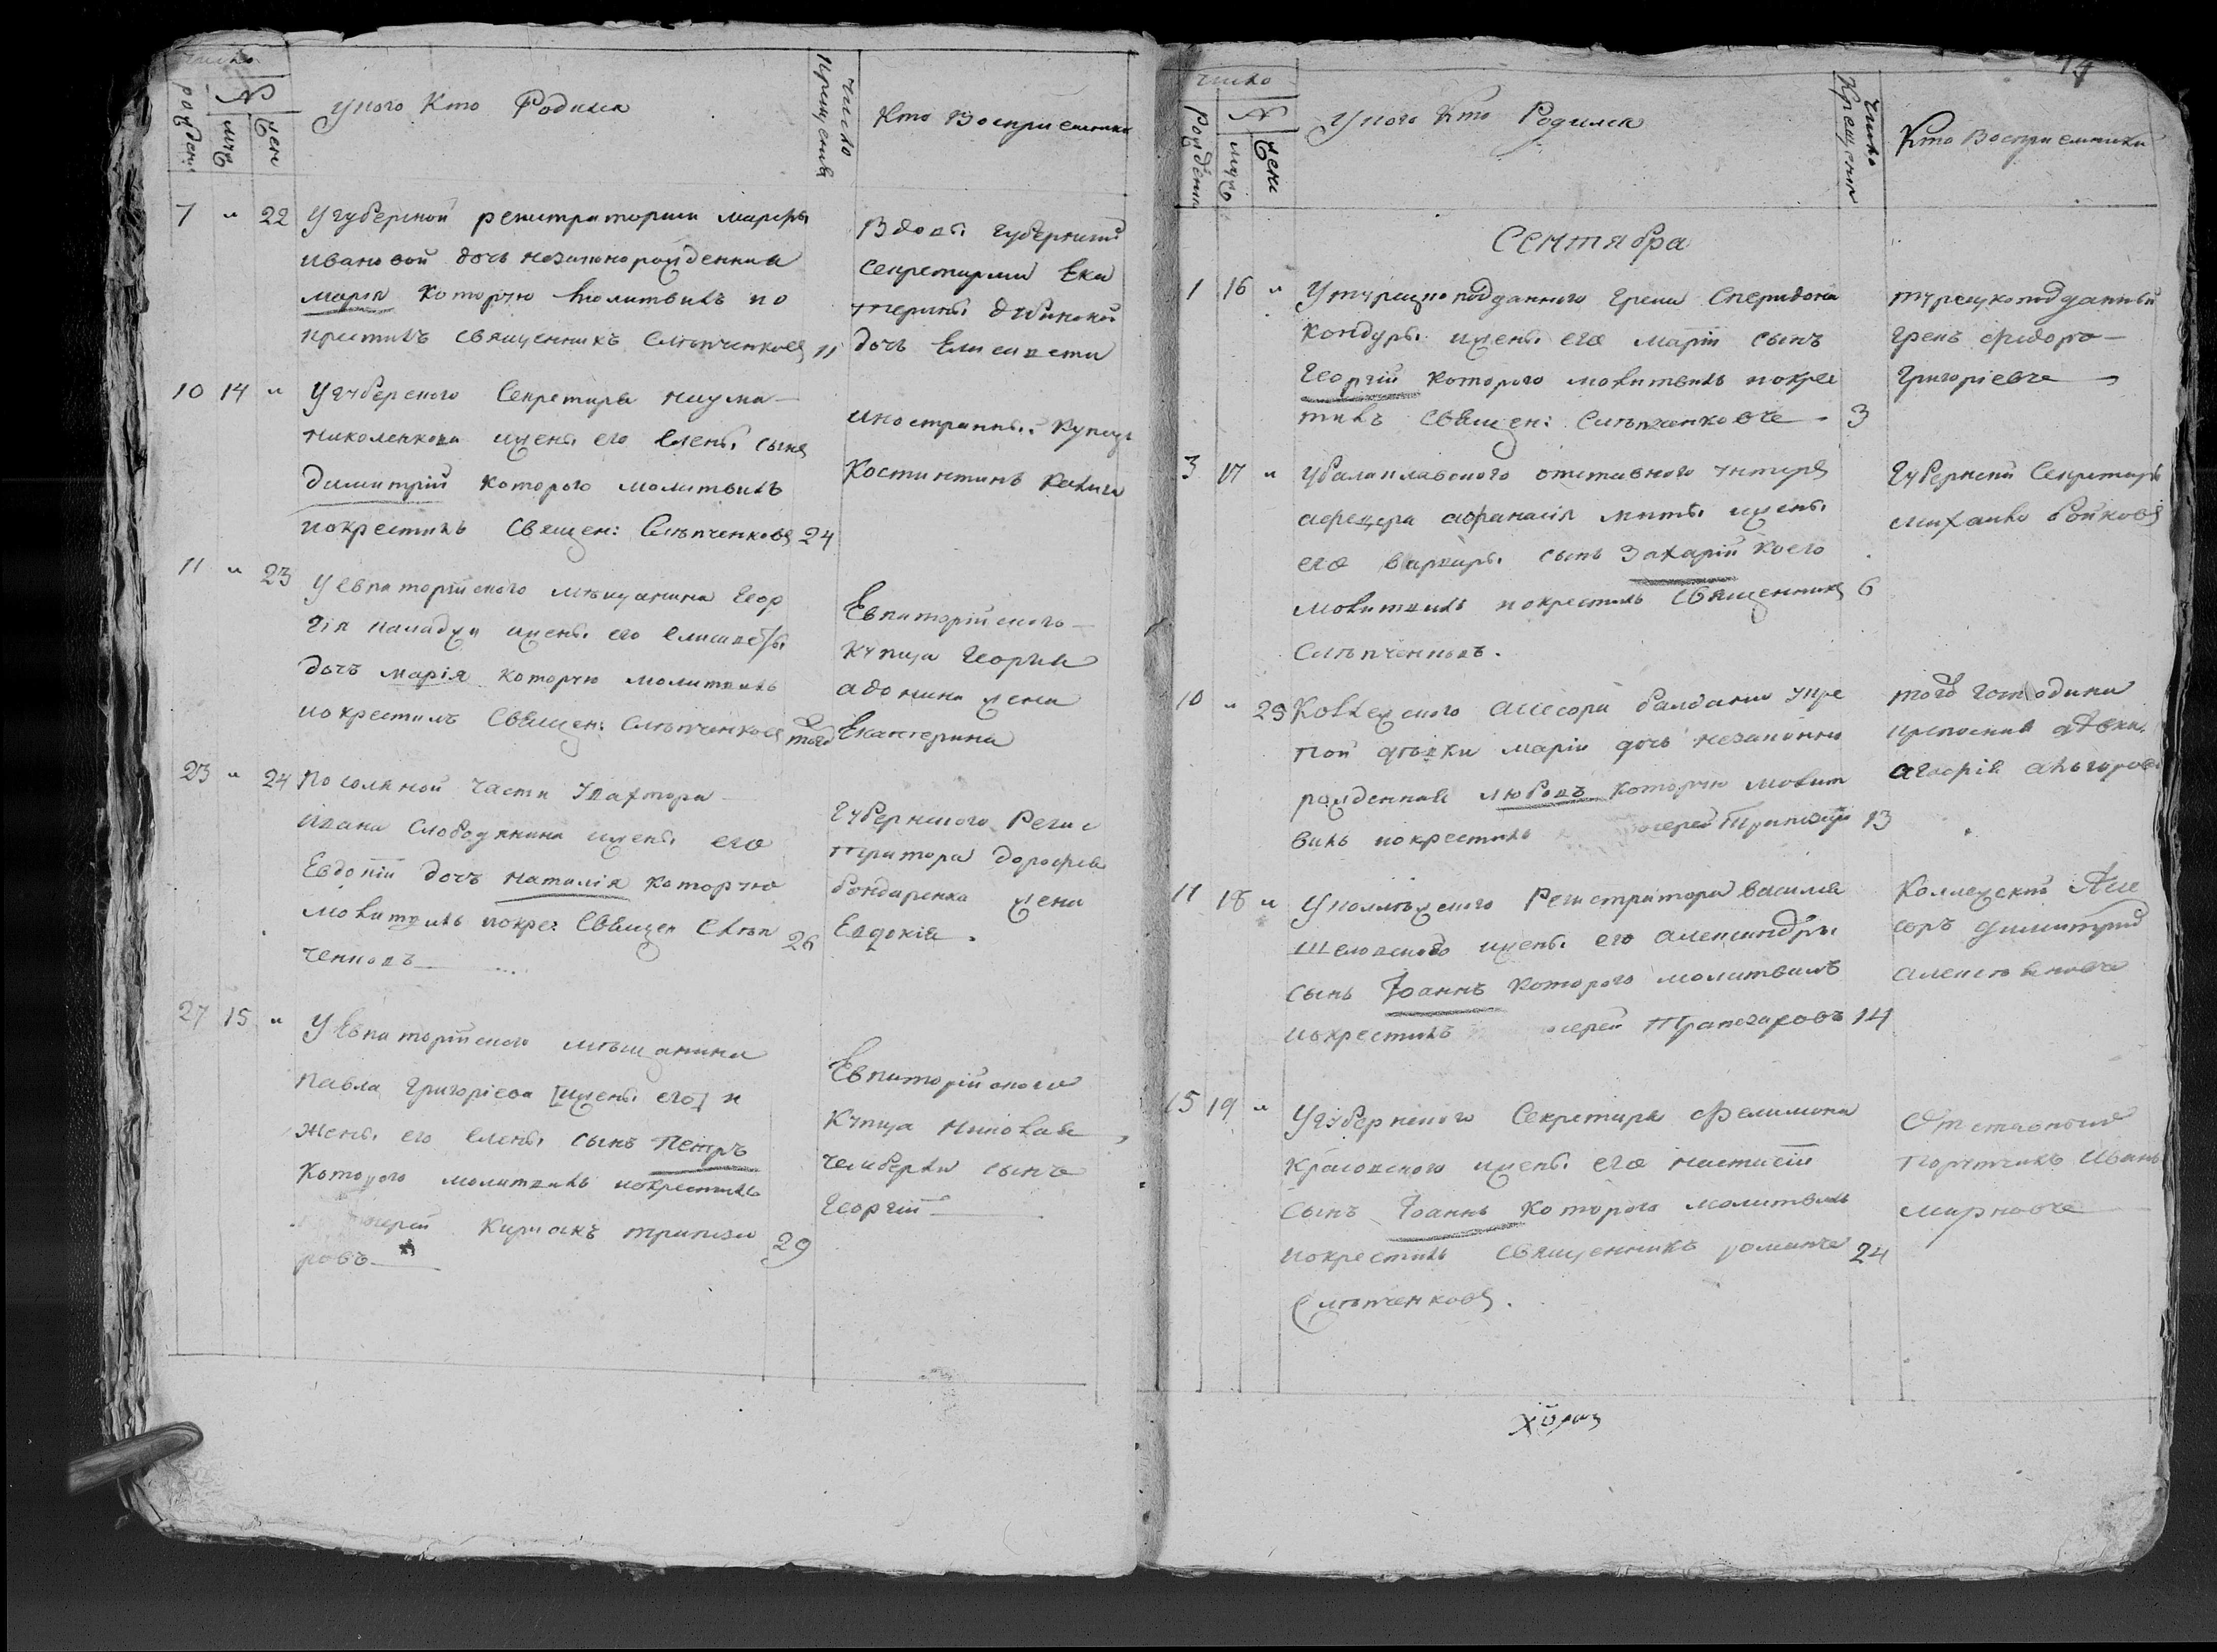 число
рожденія
№
муж
жен
У кого Кто Родился
число крещенія
Кто Восприемники
7 " 22 У губерской регистраторши марфы
ивановой дочъ незаконорожденная
марія которую молитвилъ и по
крестилъ священникъ Слѣпченковъ 11
Вдовы губернской
секретарши Ека
терины
дочъ Елисавета
10 14 " У губерского Секретаря наума
николенкова жены его Елены сынъ
димитрій которого молитвилъ
покрестилъ Священ: Слѣпченковъ 24
иностранны. Купец
Костинтинъ
11 " 23 У евпаторійского мѣщанина Геор
гія паладжи жены его елисаветы
дочъ марія которую молитвилъ
покрестилъ Священ: Слѣпченковъ того
Евпаторійского
купца Георгія
адонина жена
Екатерина
23 " 24 По соляной части у вахтера
ивана Слободянина жены его
Евдокіи дочъ наталія которую
молитвилъ покре: Священ Слѣп
ченковъ 26
Губернского Регис
тратора дорофея
бондаренка жена
Евдокія.
27 15 " У Евпаторійского мѣщанина
Павла Григоріева [жены его] и
жены его елены сынъ Петръ
которого молитвилъ покрестилъ
иерей Кириакъ трапеза
ровъ 29
Евпаторійского
купца николая
челеберки сынъ
Георгій
74
число
рожденія
№
муж
жены
У кого Кто Родился
число Крещенія
Кто Восприемники
Сентября
1 16 " У турецкоподданного грека Спиридона
кондуры жены его маріи сынъ
Георгій которого молитвилъ покрес
тилъ священ: Слѣпченковъ 3
турецкоподданный
грекъ фидоръ
Григоріевъ
3 17 " У балаклавского отставного унтеръ
афецера афанасія мити жены
его варвары сынъ Захарій коего
молитвилъ покрестилъ Священникъ 6
Слѣпченковъ.
Губернский Секретарь
михаило бойковъ
10 " 25 Коллежского асесора балдани у кре
пой дѣвки маріи дочь незаконно
рожденная любовъ которую молит
вилъ покрестилъ иерей Трапезаровъ 13
того господина
крепосная девка
агафія
11 18 " У коллѣжского Регистратора василия
Шеловского жены его александры
сынъ Іоаннъ которого молитвилъ
покрестилъ иерей Трапезаровъ 14
Коллежский Асе
соръ димитрий
15 19 " У губернского Секретаря Филимона
Красовского жены его настасіи
сынъ Іоаннъ которого молитвилъ
покрестилъ священникъ романъ 24
Слѣпченковъ.
Отставной
порутчикъ Иванъ
марковъ